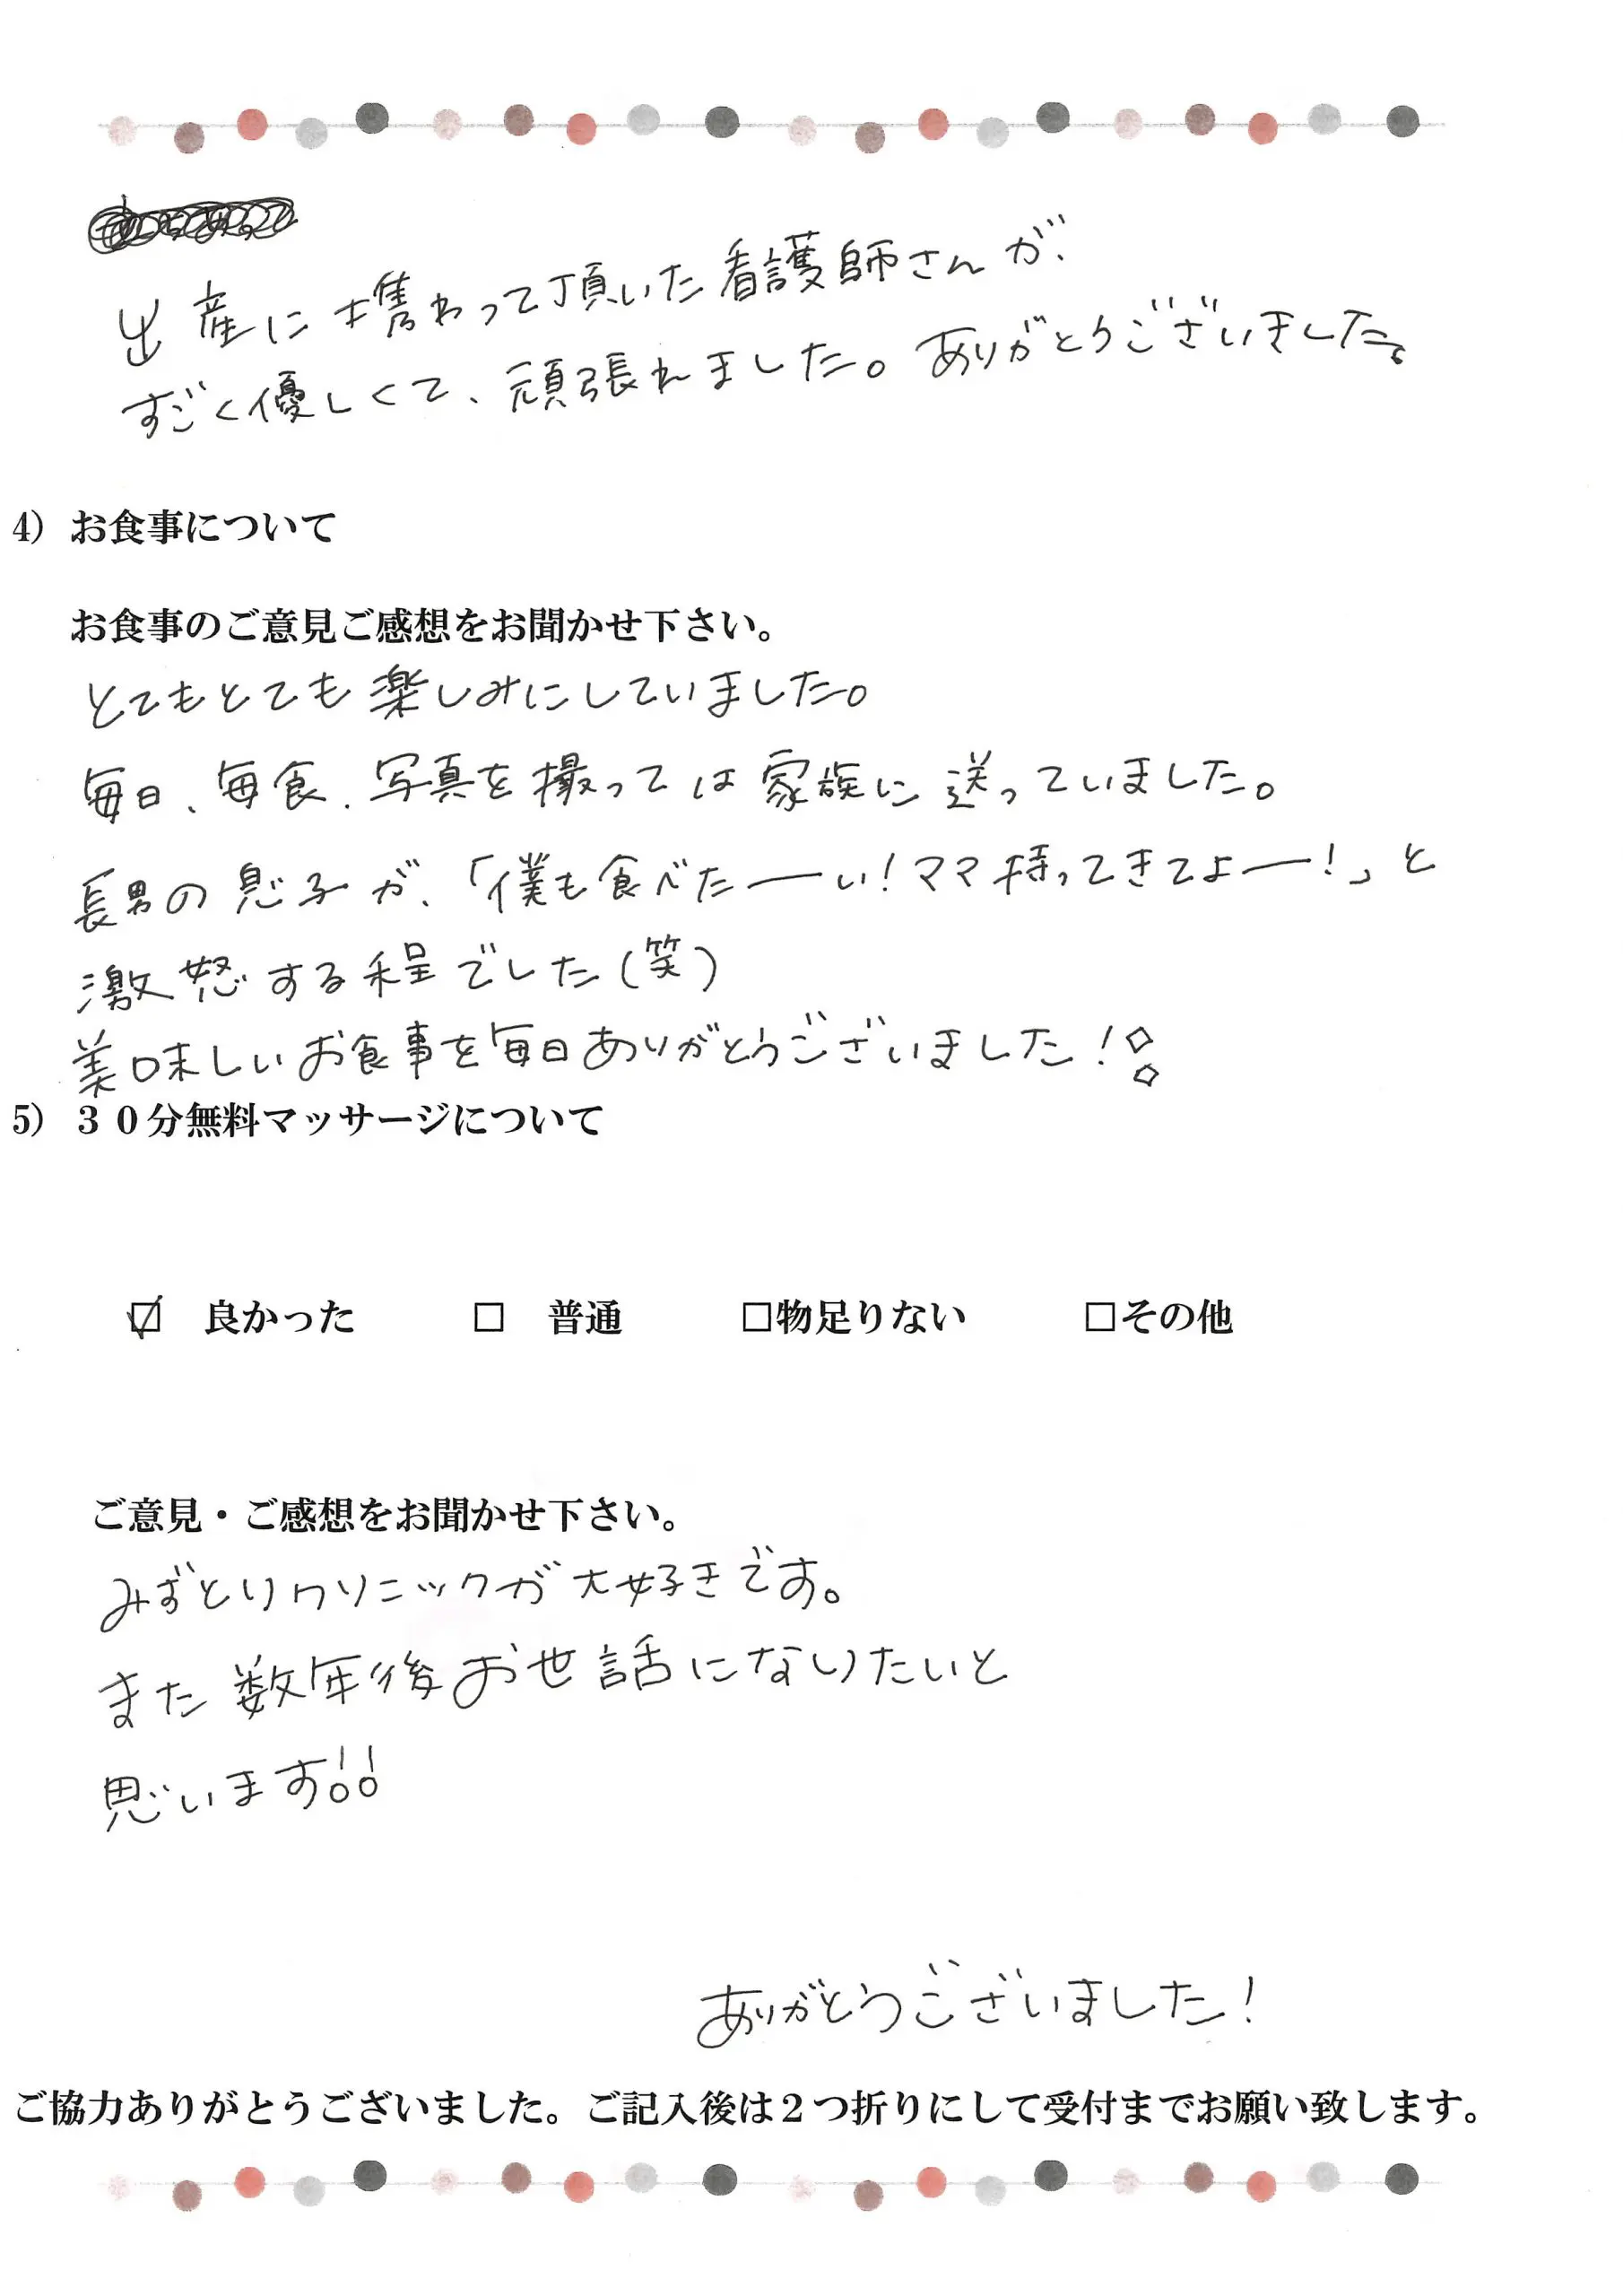 出産に携わって頂いた看護師さんが、
すごく優しくて、頑張れました。ありがとうございました。
4) お食事について
お食事のご意見ご感想をお聞かせ下さい。
とてもとても楽しみにしていました。
毎日、毎食、写真を撮っては家族に送っていました。
長男の息子が、「僕も食べたーい!ママ持ってきてよー!」と
激怒する程でした(笑)
美味しいお食事を毎日ありがとうございました!
5) 30分無料マッサージについて
☑ 良かった □ 普通 □物足りない □その他
ご意見・ご感想をお聞かせ下さい。
みずとりクリニックが大好きです。
また数年後お世話になりたいと
思います!!
ありがとうございました!
ご協力ありがとうございました。ご記入後は2つ折りにして受付までお願い致します。